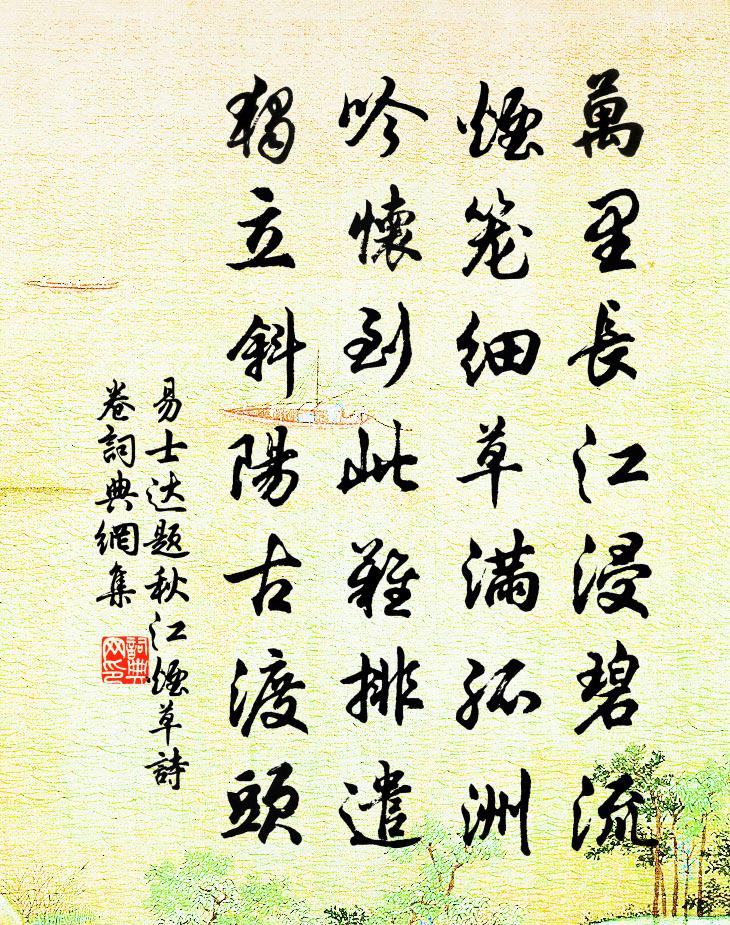 萬里長江浸碧流
煙笼细草满孤洲
吟懷到此難排遣
獨立斜陽古渡頭
易士达题秋江煙草詩
卷詞典網集
詞典网印